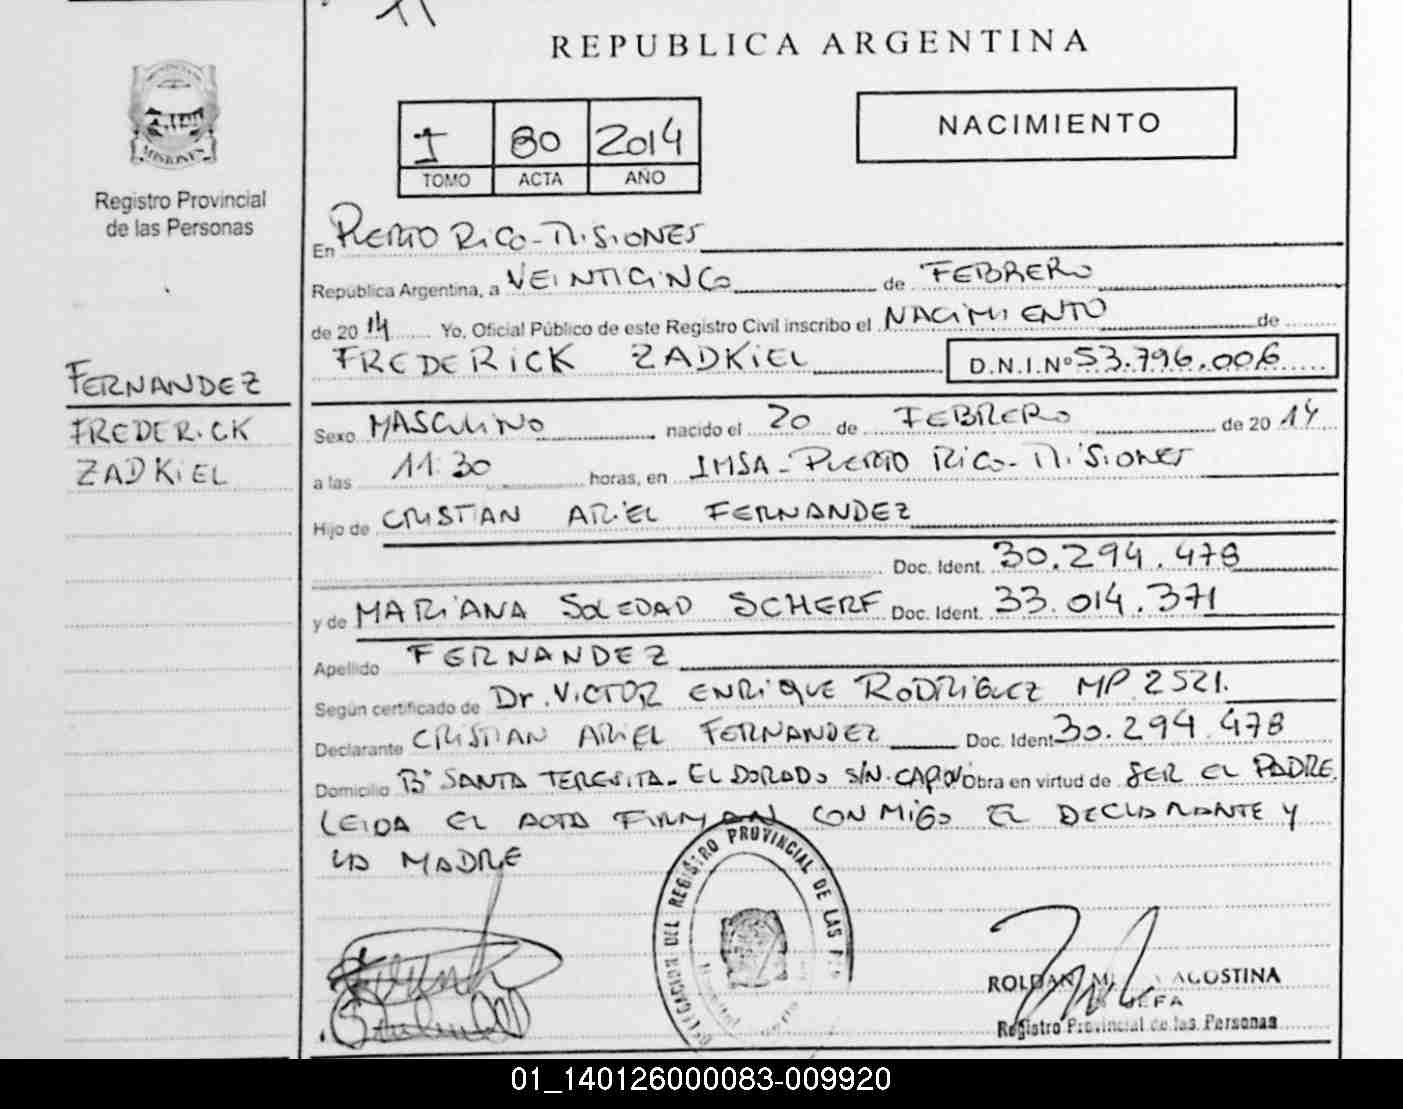 REPUBLICA ARGENTINA
MISIONES
Registro Provincial
de las Personas
I 80 2014
TOMO ACTA AÑO
NACIMIENTO
En PUERTO RICO - MISIONES
República Argentina, a VEINTICINCO de FEBRERO
de 20 14 Yo, Oficial Público de este Registro Civil inscribo el NACIMIENTO de
FREDERICK ZADKIEL D.N.I.Nº 53.796.006
FERNANDEZ
FREDERICK
ZADKIEL
Sexo MASCULINO nacido el 20 de FEBRERO de 20 14
a las 11.30 horas, en IMSA - PUERTO RICO - MISIONES
Hijo de CRISTIAN ARIEL FERNANDEZ
Doc. Ident. 30.294.478
y de MARIANA SOLEDAD SCHERF Doc. Ident. 33.014.371
Apellido FERNANDEZ
Según certificado de Dr. VICTOR ENRIQUE RODRIGUEZ MP 2521.
Declarante CRISTIAN ARIEL FERNANDEZ Doc. Ident 30.294.478
Domicilio Bº SANTA TERESITA - EL DORADO S/N. CAPOVI Obra en virtud de SER EL PADRE
LEIDA EL ACTA FIRMAN CON MIGO EL DECLARANTE Y
LA MADRE
DELEGACION DEL REGISTRO PROVINCIAL DE LAS
ROLDAN AGOSTINA
JEFA
Registro Provincial de las Personas
01_140126000083-009920